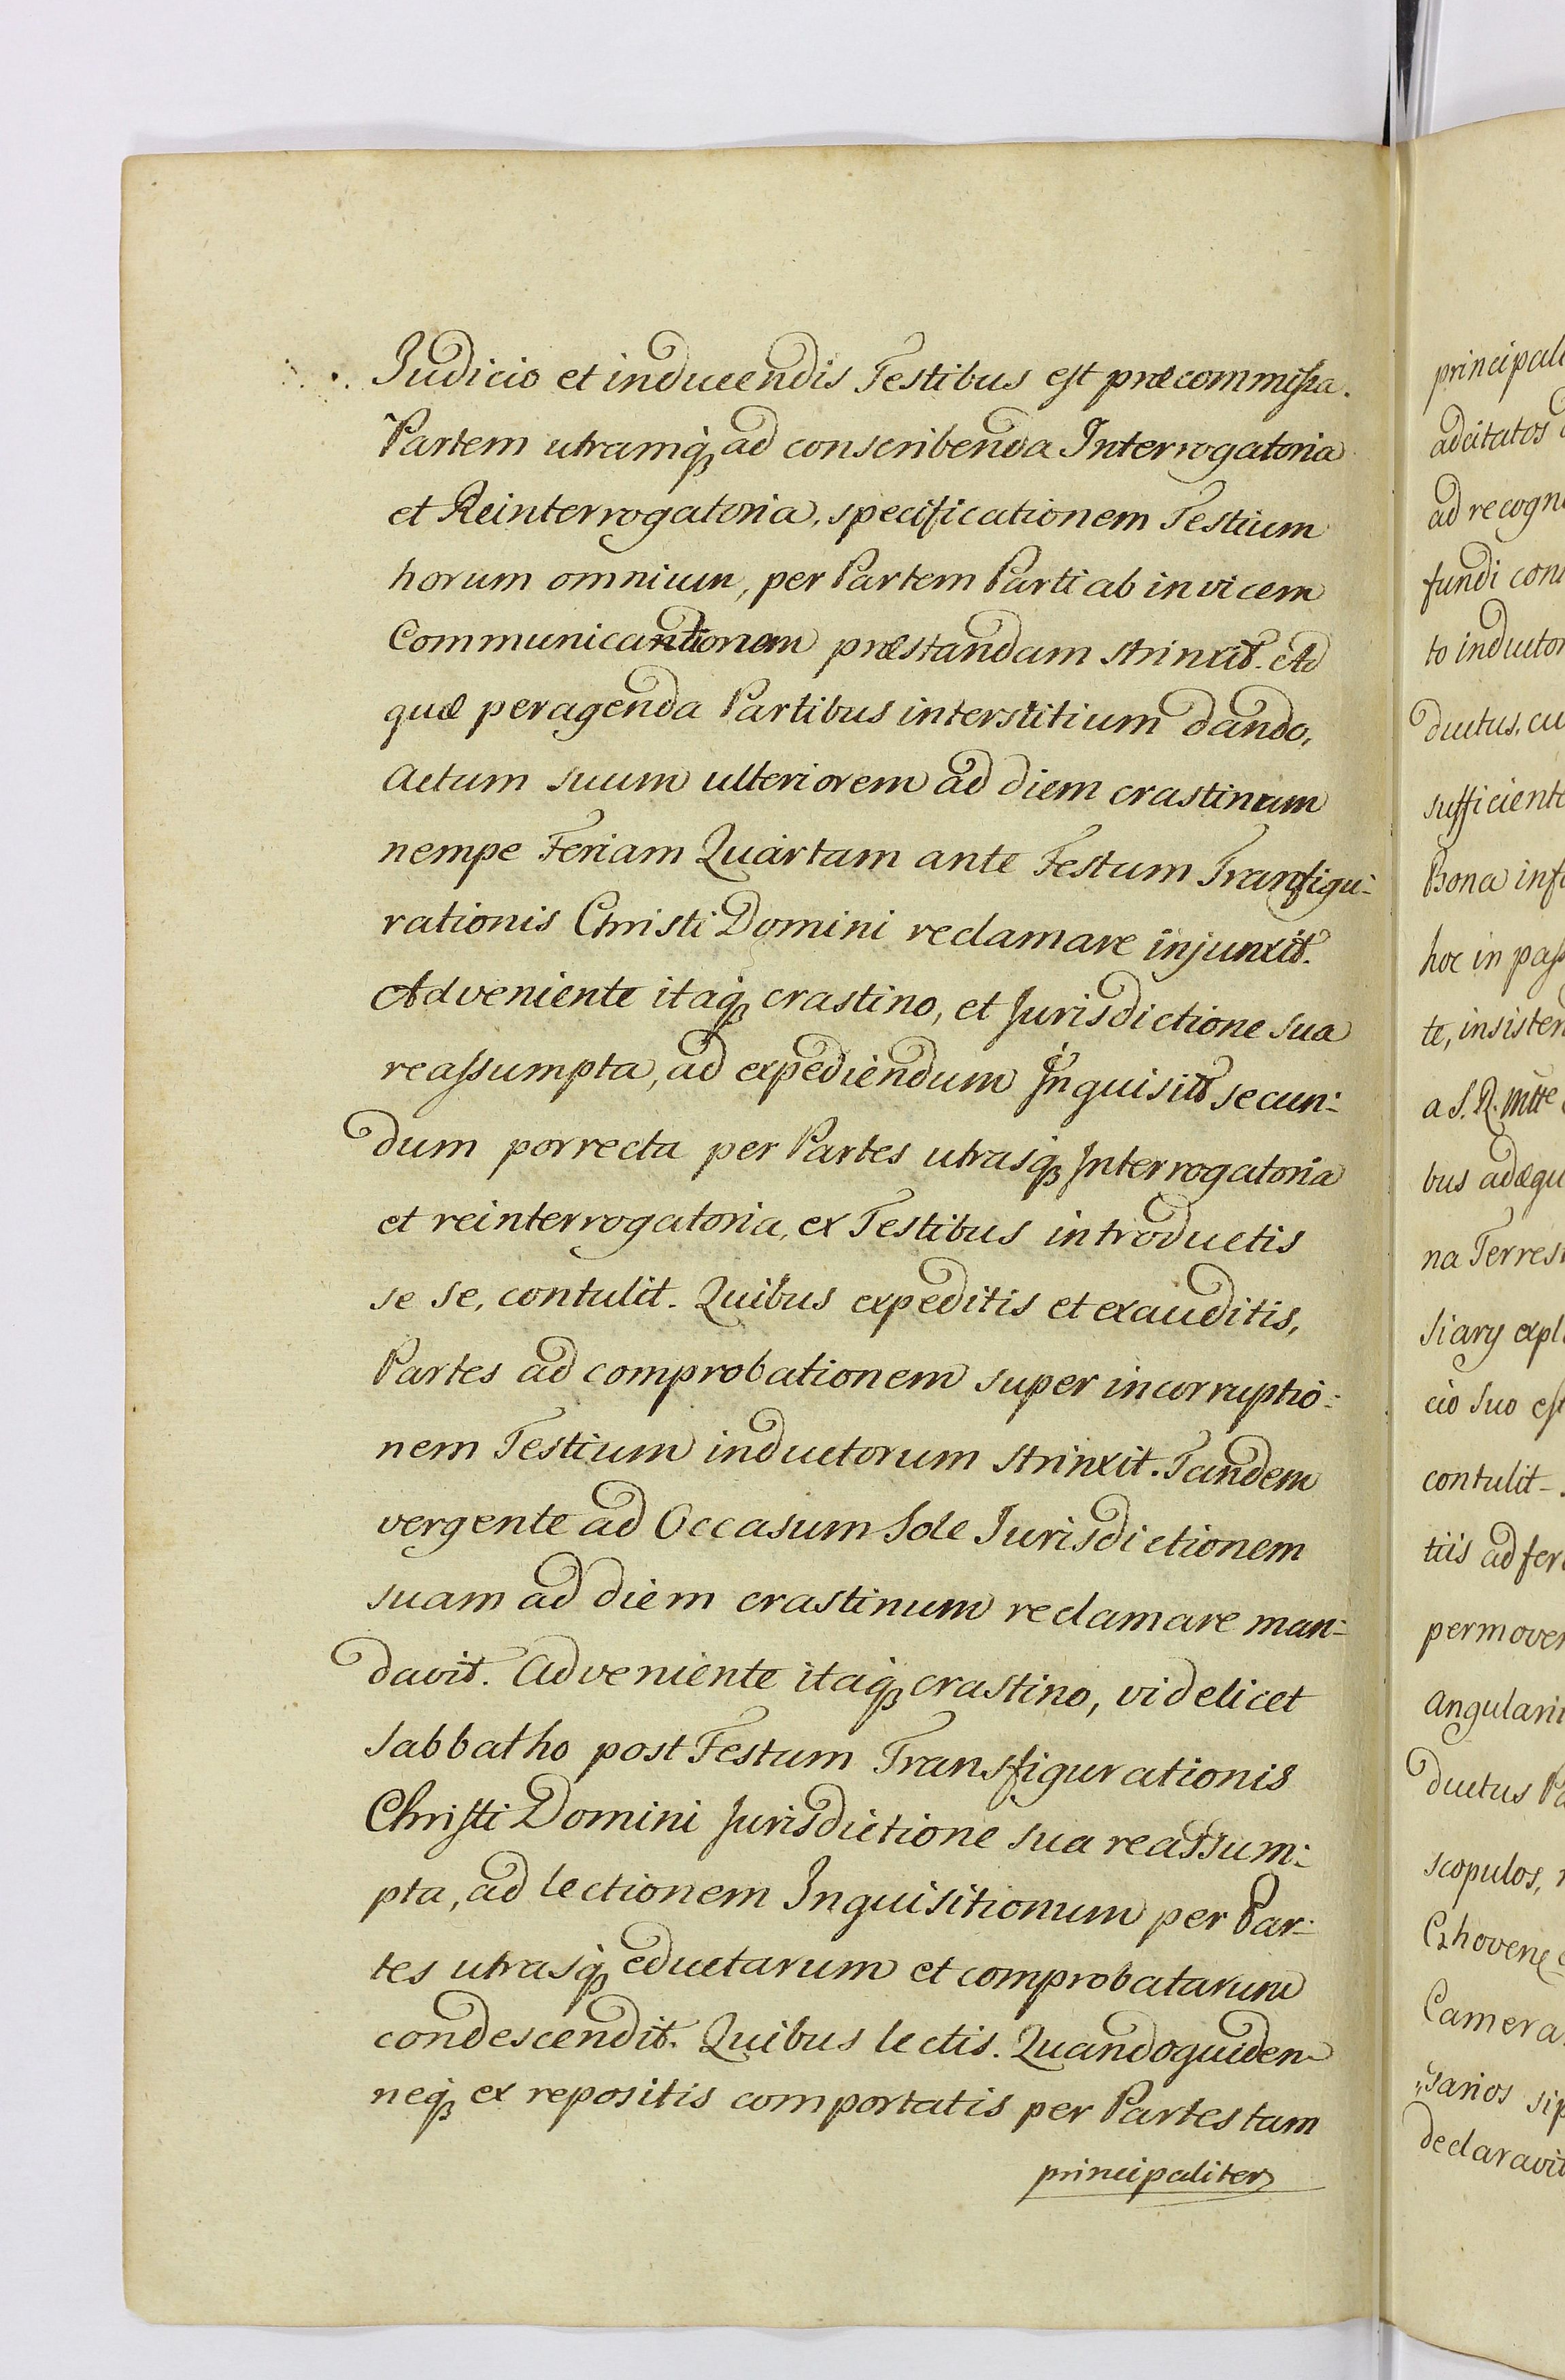 Judicio et inducendis Testibus est præcommissa.
Partem utramq₃ ad conscribenda Interrogatoria
et Reinterrogatoria, specificationem Testium
horum omnium, per Partem Parti ab invicem
Communicationem præstandam strinxit. Ad
quæ peragenda Partibus interstitium dando,
Actum suum ulteriorem ad diem crastinum
nempe Feriam Quartam ante Festum Transfigu-
rationis Christi Domini reclamare injunxit.
Adveniente itaq₃ crastino, et Jurisdictione sua
reassumpta, ad expediendum Inquisit secun-
dum porrecta per Partes utrasq₃ Interrogatoria
et reinterrogatoria, ex Testibus introductis
se se, contulit. Quibus expeditis et exauditis,
Partes ad comprobationem super incorruptio-
nem Testium inductorum strinxit. Tandem
vergente ad Occasum Sole Jurisdictionem
suam ad diem crastinum reclamare man-
davit. Adveniente itaq₃ crastino, videlicet
Sabbatho post Festum Transfigurationis
Christi Domini Jurisdictione sua reassum-
pta, ad lectionem Inquisitionum per Par-
tes utrasq₃ eductarum et comprobatarum
condescendit. Quibus lectis. Quandoquidem
neq₃ ex repositis comportatis per Partes tam
principaliter
principali
adcitatos
ad recogn
fundi con
to inductor
ductus, cu
sufficiente
Bona inf
hoc in pass
te, insisten
a S. R. Mtte
bus adæqu
na Terrest
siary expl
cio suo est
contulit.
tiis ad fer
permover
angulari
ductus Pa
scopulos,
Camera
sarios sip
declaravit